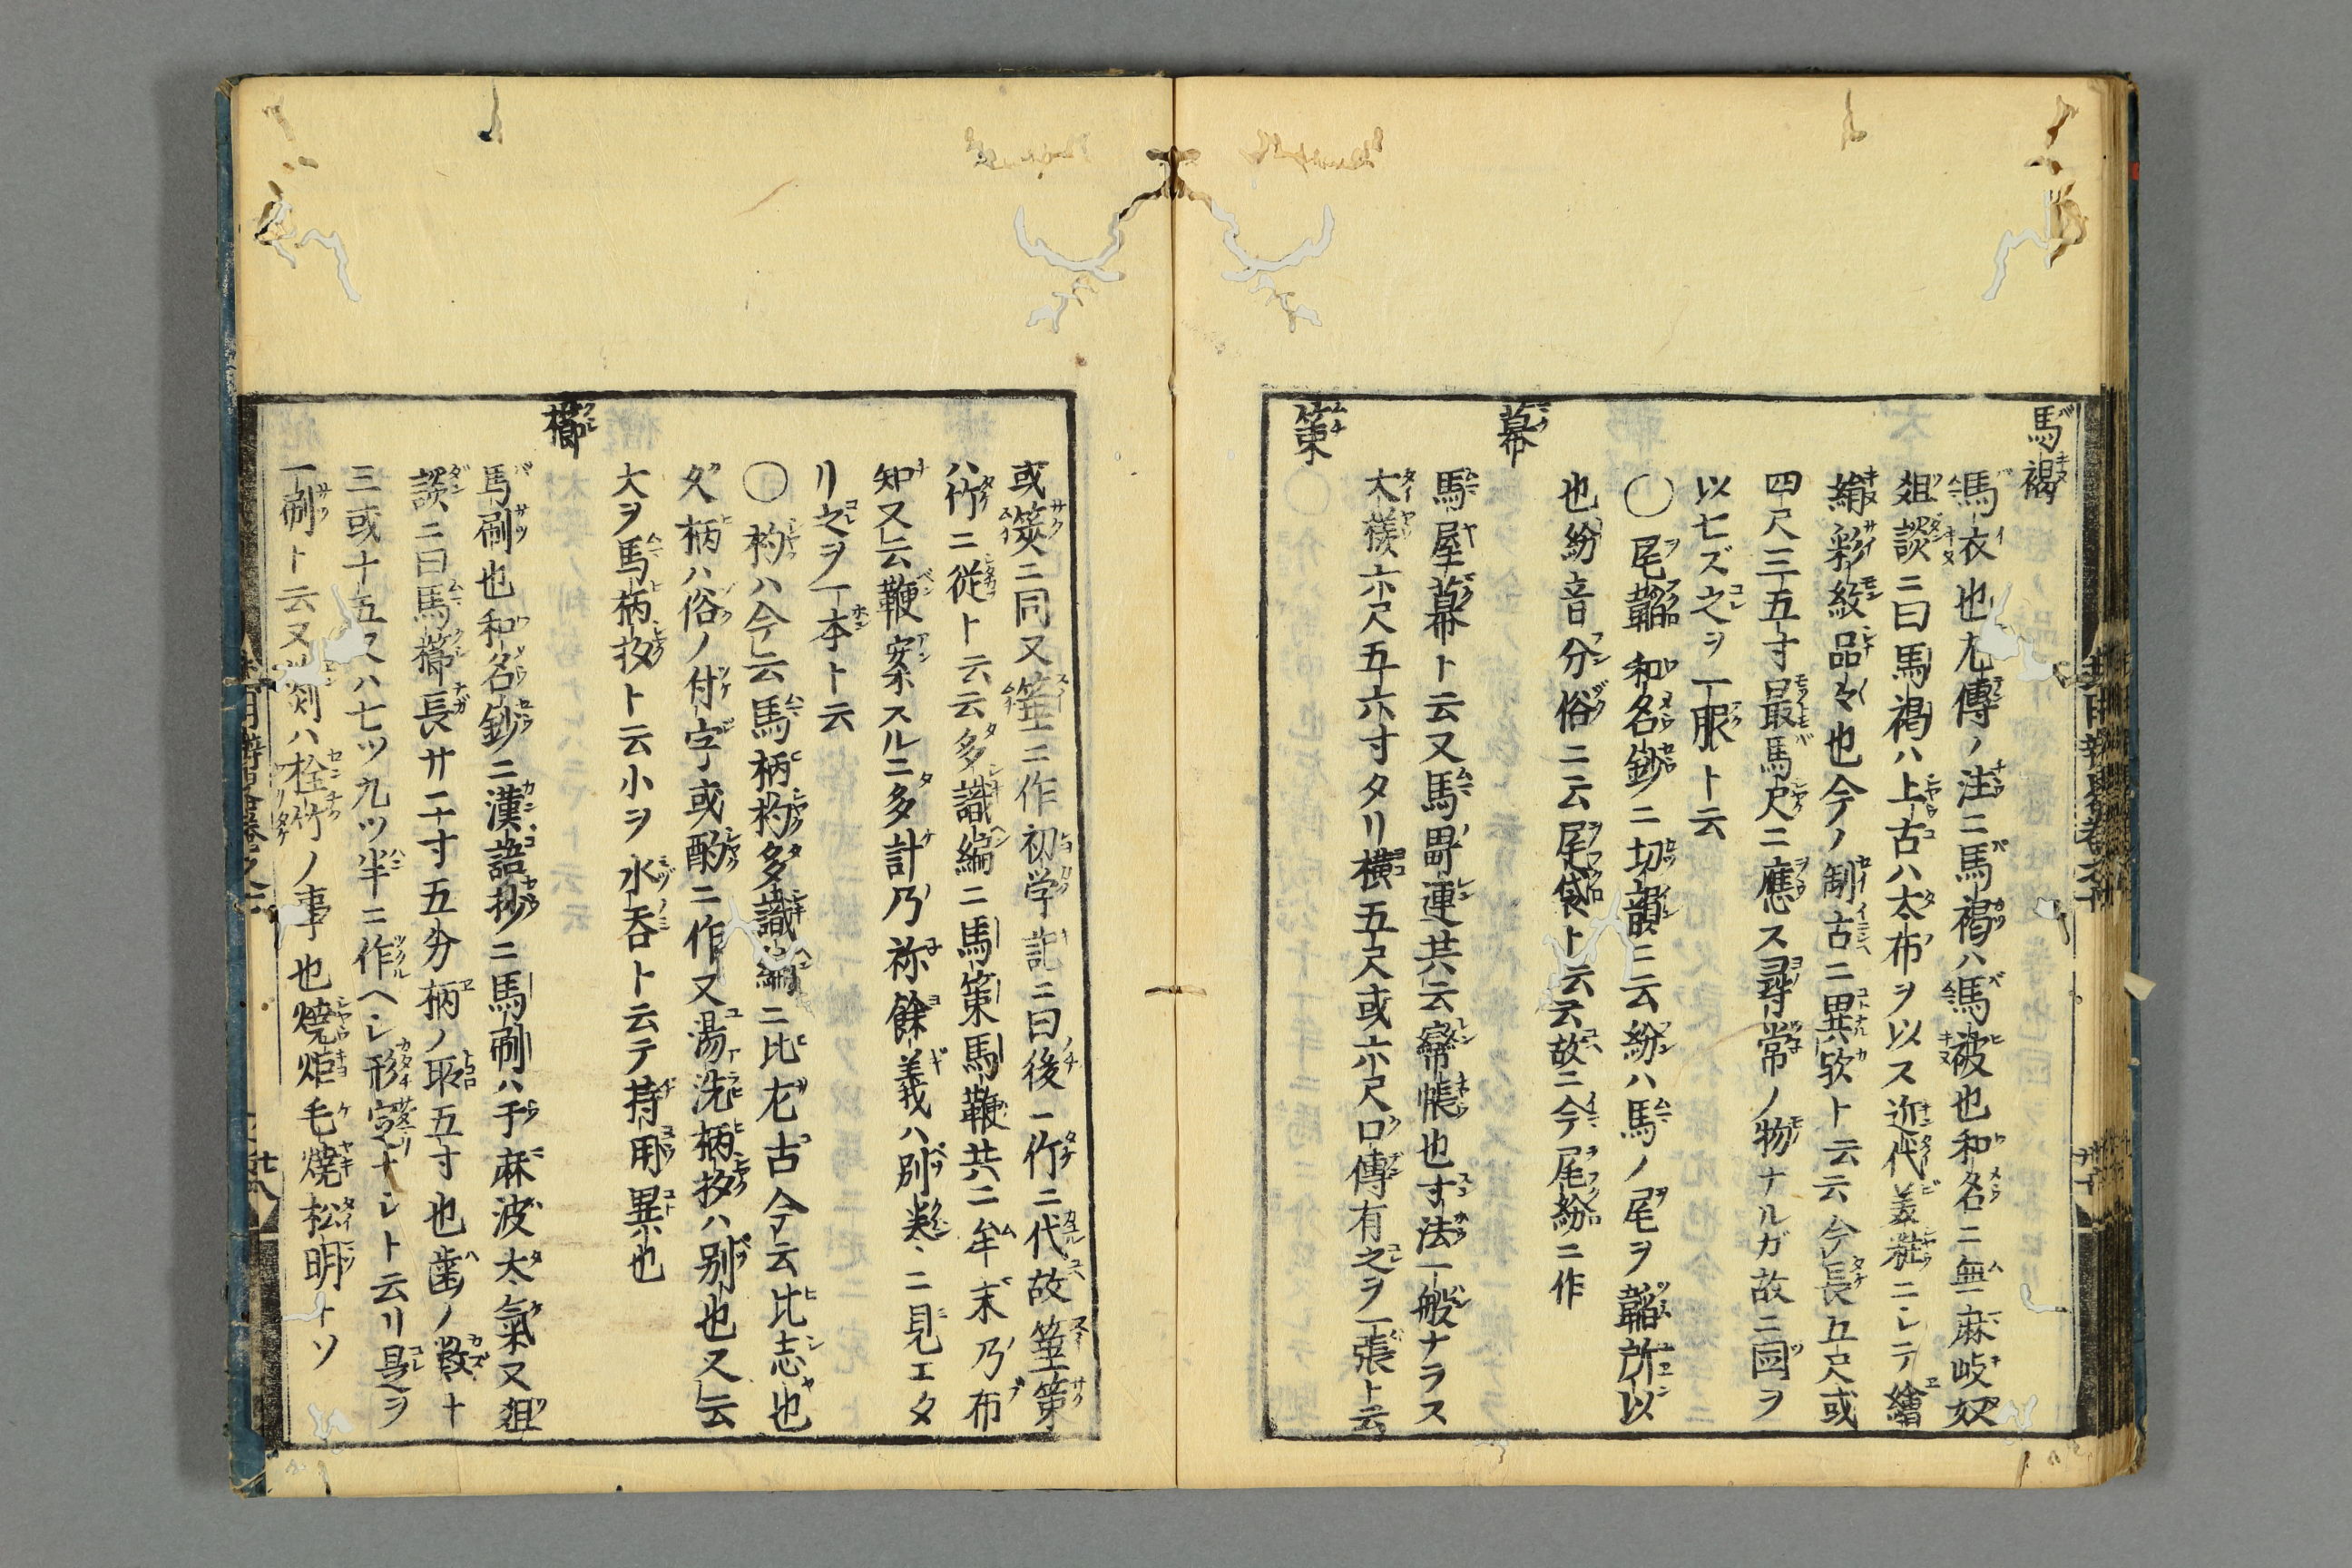 馬褐
馬衣也左傳ノ注ニ馬褐ハ馬被也和名ニ無麻岐奴
爼談ニ曰馬褐ハ上古ハ太布ヲ以ス近代美粧ニシテ繪
絹彩紋品々也今ノ制古ニ異欤ト云云今長五尺或
四尺三五寸最馬尺ニ應ス尋常ノ物ナルガ故ニ図ヲ
以セズ之ヲ一服ト云
〇尾韜和名鈔ニ切韻ニ云紛ハ馬ノ尾ヲ韜所以
也紛音分俗ニ云尾袋ト云云故ニ今尾紛ニ作
幕
馬屋幕ト云又馬㽗連共云帘帳也寸法一般ナラス
大様六尺五六寸タリ横五尺或六尺口傳有之ヲ一張ト云
策
或筴ニ同又箠ニ作初学記ニ曰後一竹ニ代故箠策
ハ竹ニ従ト云云多識編ニ馬策馬鞭共ニ牟末乃布
知又云鞭案スルニ多計乃祢餘義ハ別巻ニ見エタ
リ之ヲ一本ト云
〇杓ハ今云馬柄杓多識編ニ比左古今云比志也
久柄ハ俗ノ付字或酌ニ作又湯洗柄杓ハ別也又云
大ヲ馬柄杓ト云小ヲ水呑ト云テ持用異也
櫛
馬刷也和名鈔ニ漢語抄ニ馬刷ハ于麻波太氣又爼
談ニ曰馬櫛長廿二寸五分柄ノ取五寸也歯ノ数十
三或十五又ハ七ツ九ツ半ニ作ヘシ形定ナシト云リ是ヲ
一刷ト云又ハ栓竹ノ事也燒炬毛燒松明トソ